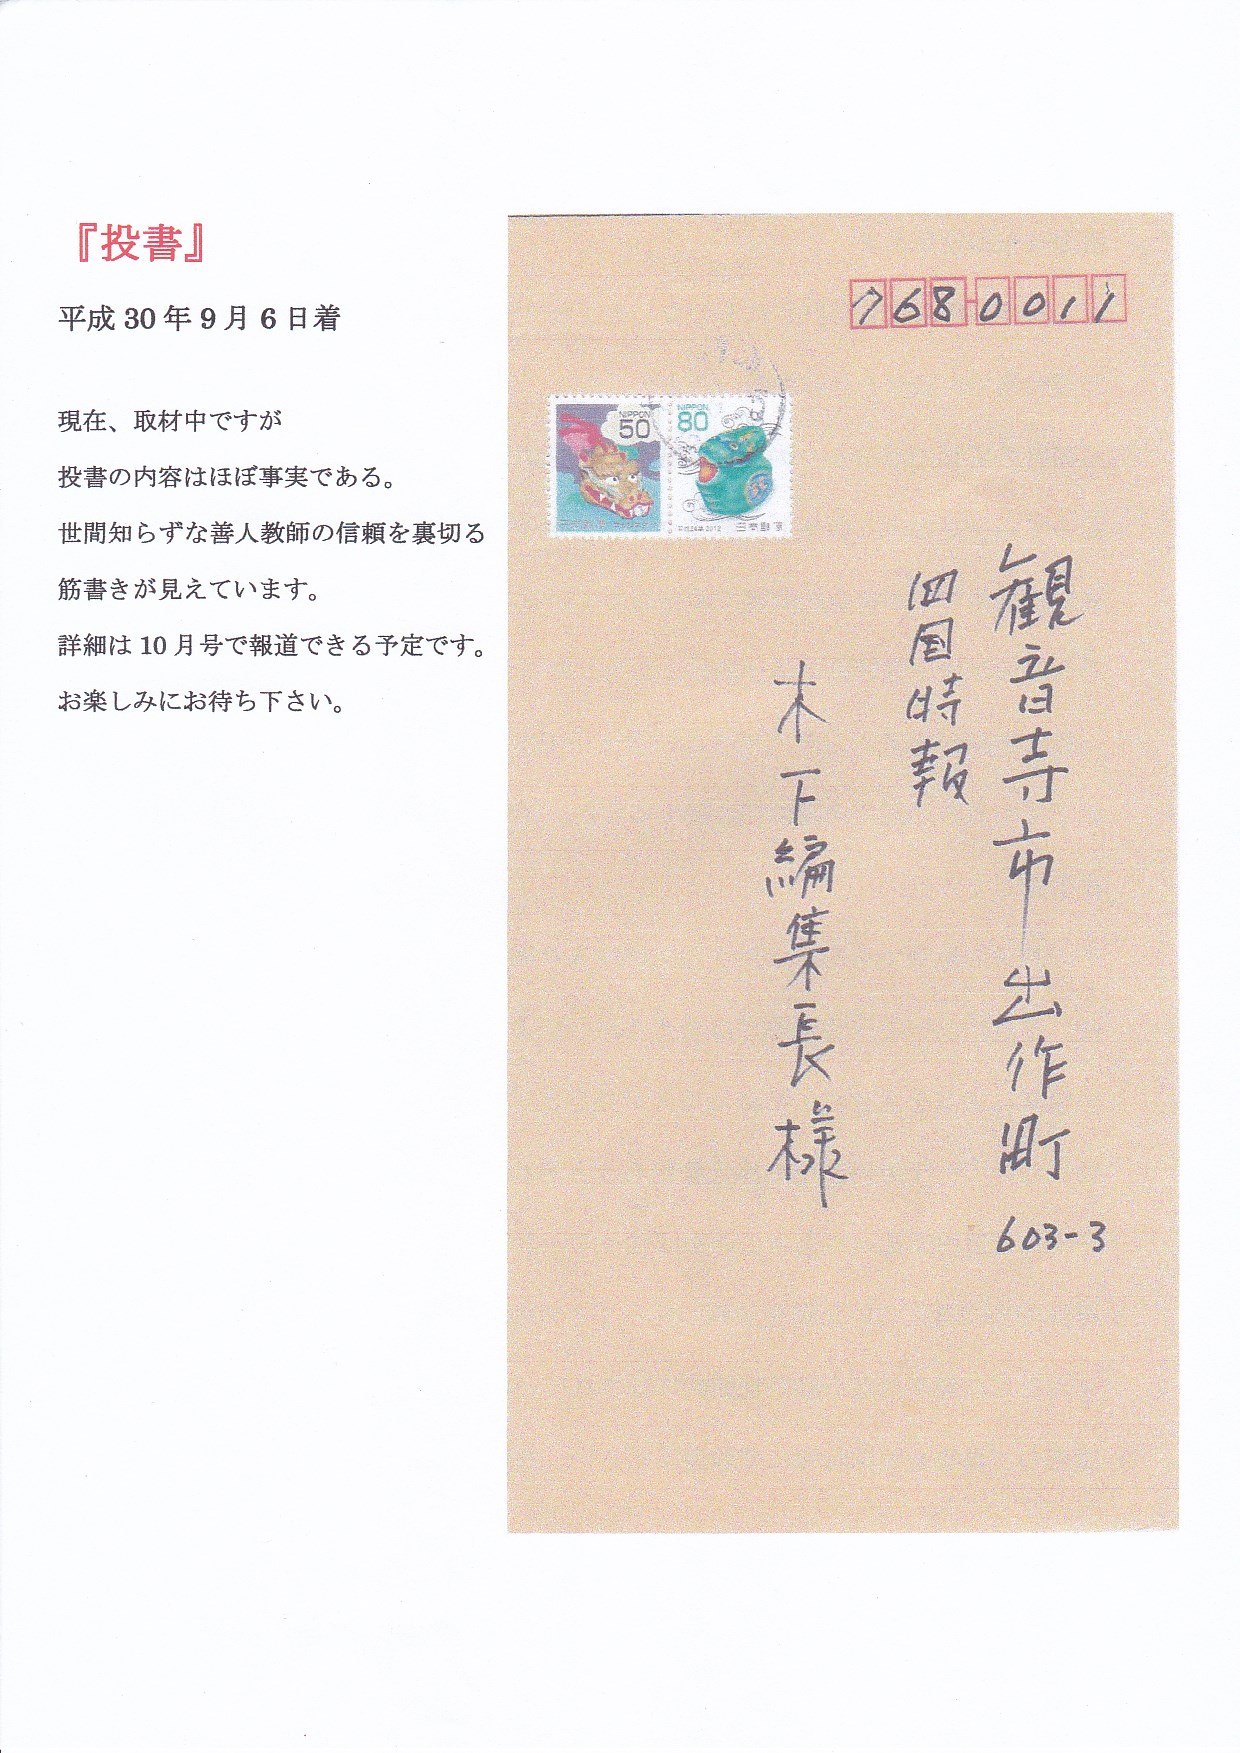 『投書』
平成30年9月6日着
現在、取材中ですが
投書の内容はほぼ事実である。
世間知らずな善人教師の信頼を裏切る
筋書きが見えています。
詳細は10月号で報道できる予定です。
お楽しみにお待ち下さい。
768-0011
NIPPON
50
NIPPON
80
平成24年 2012
日本郵便
観音寺市出作町
603-3
四国時報
木下編集長様